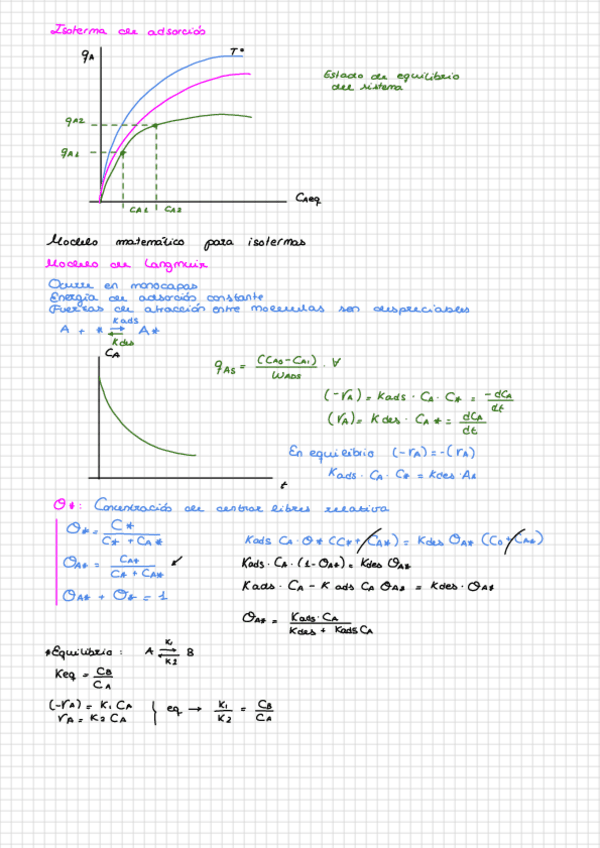 Isoterma de adsorción
qA
T°
Estado de equilibrio
del sistema
qA2
qA1
CA1 CA2
CAeq
Modelo matemático para isotermas
Modelo de Langmuir
Ocurre en monocapas
Energía de adsorción constante
Fuerzas de atracción entre moleculas son despreciables
A + * ⇌ A*
Kads
Kdes
CA
t
qAS = ((CA0-CA1)/WADS) · V
(-rA) = Kads · CA · C* = -dCA/dt
(rA) = Kdes · CA* = dCA/dt
En equilibrio (-rA) = -(rA)
Kads · CA · C* = Kdes · A*
Θ*: Concentración de centros libres relativa
Θ* = C*/(C* + CA*)
ΘA* = CA*/(C* + CA*)
ΘA* + Θ* = 1
Kads CA · Θ* (C* + CA*) = Kdes ΘA* (C0 + CA*)
Kads · CA · (1-ΘA*) = Kdes ΘA*
Kads · CA - Kads CA ΘA* = Kdes · ΘA*
ΘA* = Kads · CA/(Kdes + Kads CA)
*Equilibrio: A ⇌ B
K1
K2
Keq = CB/CA
(-rA) = K1 CA
rA = K2 CA
} eq → K1/K2 = CB/CA